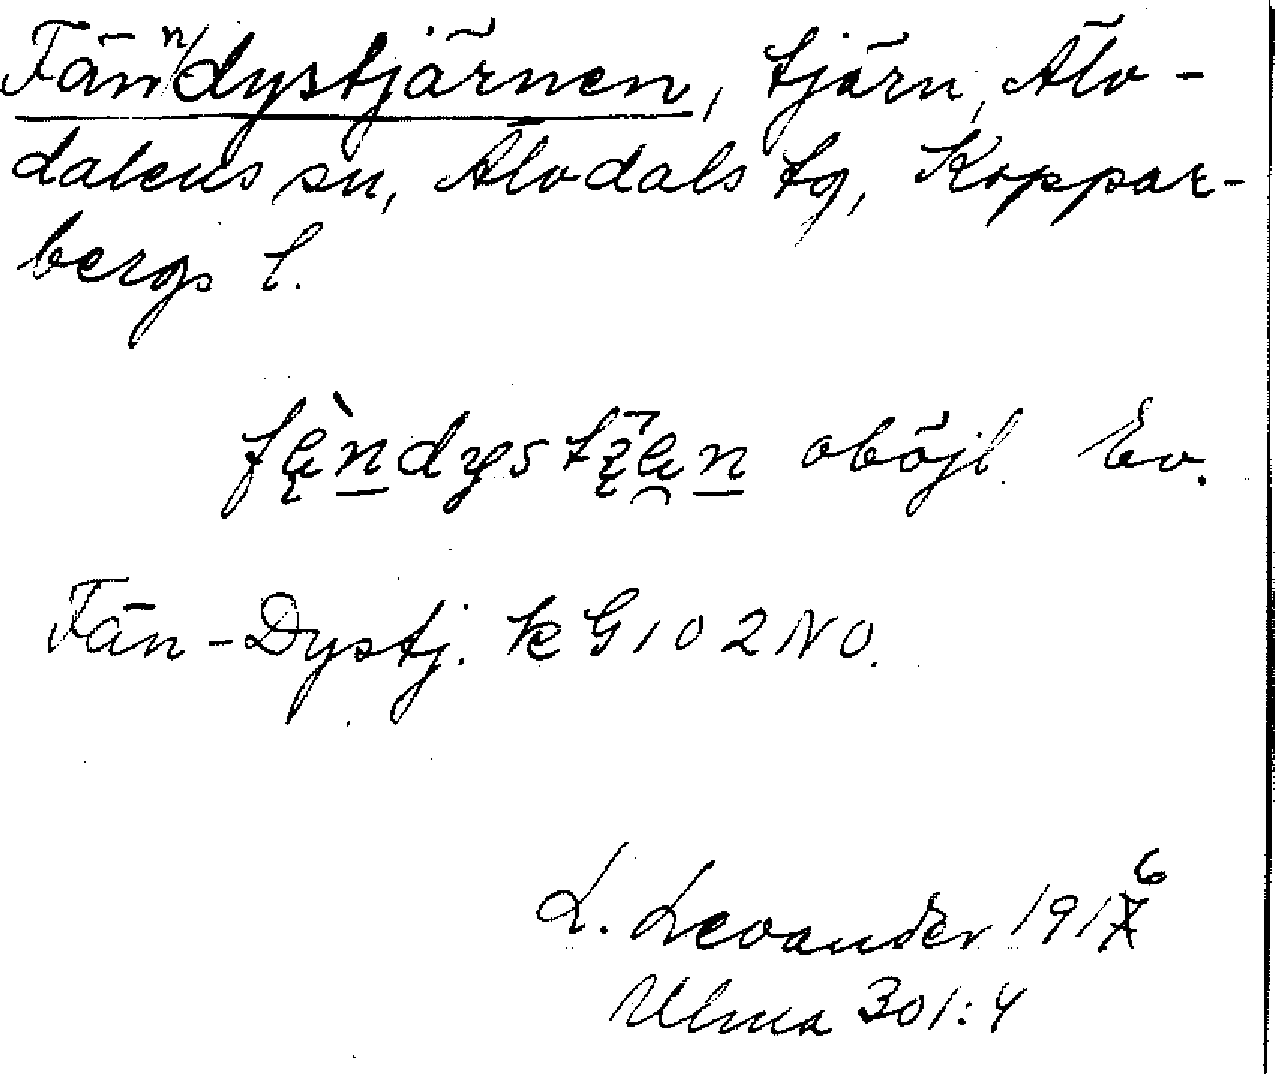 Fänndystjärnen, tjärn, Älv-
dalens sn, Älvdals tg, Koppar-
bergs l.
oböjl. Ev.
Fän-Dystj. k G 102 NO.
L. Levander 1916
Ulma 301:4